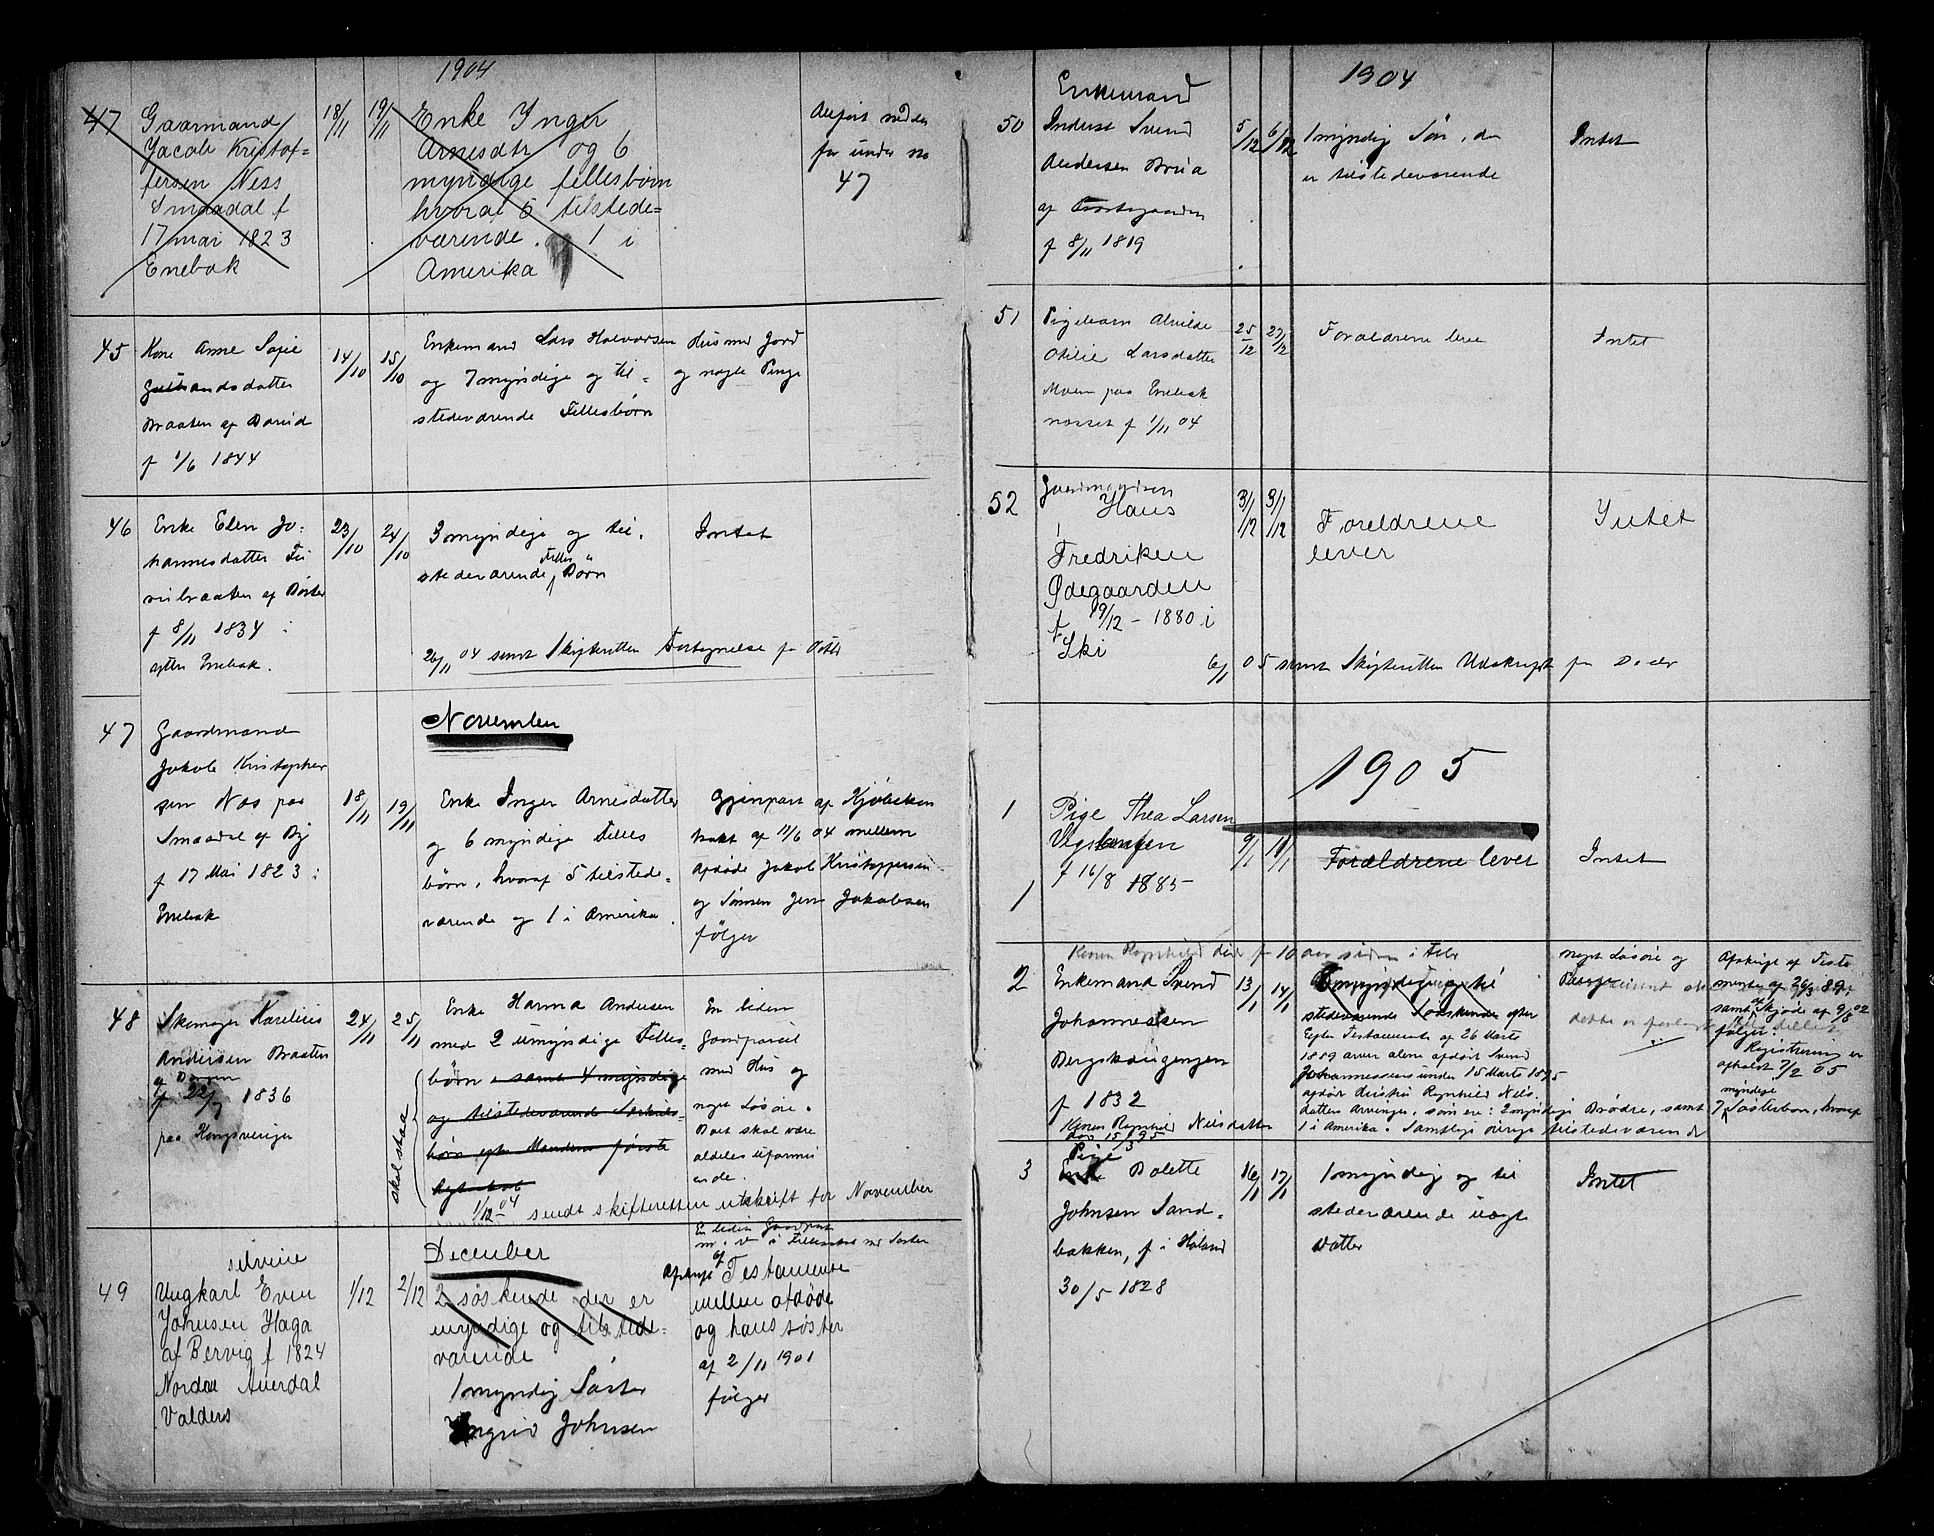 1904
47
Gaarmand
Jacob Kristof=
fersen Ness
Smaadal f
17 mai 1823
Enebak
18/11
19/11
Enke Inger
Arnesdtr og 6
myndige fellesbørn
hvoraf 5 tilstede=
værende. og 1 i
Amerika
Anført neden
for under no
47
45
Kone Anne Sofie
Gulbrandsdatter
Braaten af
f 1/6 1844
14/10
15/10
Enkemand Lars Halvorsen
og 7 myndige og til=
stedeværende Fellesbørn
Hus med Jord
og nogle Penge
46
Enke Elen Jo=
hannesdatter
af Børter
f 8/11 1834 i
ytter Enebak.
23/10
24/10
3 myndige og til=
stedeværende Felles Børn
Intet
26/11 04 sendt Skifteretten Fortegnelse for Octbr
November
47
Gaardmand
Jakob Kristopher
sen Næs paa
Smaadal af By
f 17 Mai 1823 i
Enebak
18/11
19/11
Enke Inger Arnesdatter
og 6 myndige Felles
børn, hvoraf 5 tilstede=
værende og 1 i Amerika.
Gjenpart af Kjøbekon
trakt af 11/6 04 mellem
afdøde Jakob Kristoppersen
og Sønnen Jens Jakobsen
følger
48
Skomager Karelius
Andersen Braaten
af
f 22/7 1836
paa Kongsvinger
24/11
25/11
Enke Harma Andersen
med 2 umyndige Felles=
børn samt 4 myndige
og tilstedeværende Særkuls=
børn efter Mandens første
Ægteskab
skal staa
En liden
Gaardparcel
med Hus og
noget Løsøre.
Boet skal være
aldeles uformu
ende.
1/12 - 04 sendt skifteretten utskrift for November
December
49
Ungkarl Even
Johnsen Haga
af Bervig f 1824
Nordre Aurdal
Valders
1/12
2/12
2 søskende der er
myndige og tilstede=
værende
1 myndig Søster
Ingrid Johnsen
En liden Gaardpart
Afskrift af Testamente
mellem afdøde
og hans søster
af 2/11 1901
følger
1904
50
Enkemand
Inderst Svend
Andersen Brua
af
f 8/11 1819
5/12
6/12
1 myndig Søn, der
er tilstedeværende
Intet
51
Pigebarn Alvilde
Otilie Larsdatter
Moen paa Enebak
nesset f 1/11 04
25/12
27/12
Forældrene leve
Intet
52
Gaardmandssøn
Hans
Fredriksen
Ødegaarden
f 19/12 - 1880 i
Ski
3/12
9/12
Foreldrene
lever
Intet
6/1 05 sendt Skifteretten Udskrift for Decbr
1905
1
Pige Thea Larsen
f 16/8 1885
9/1
10/1
Forældrene lever
Intet
2
Enkemand Svend
Johannessen
Bergskaugengen
f 1832
Konen Ragnhild Nilsdatter
død 15/3 95
13/1
14/1
Konen Ragnhild døde for 10 aar siden i febr
myndige og til
stedeværende Søskende efter
Egtr Testamente af 26 Marts
1889 arver alene afdøde Svend
Johannessens under 15 Marts 1895
afdøde Hustru Ragnhild Nils=
datters Arvinger, som ere: 2 myndige Brødre, samt 7 myndige Søsterbørn, hvoraf
1 i Amerika. Samtlige øvrige tilstedeværende
noget Løsøre og
Penge
dette er forlangt
Afskrift af Testa
mente af 26/3 89,
samt af Skjøde af 9/8 02
følger.
Registrering er
afholdt 7/2 05
3
Pige
Dolette
Johnsen Sand=
bakken, f i Høland
30/5 1828
16/1
17/1
1 myndig og til
stedeværende uægte
Datter
Intet